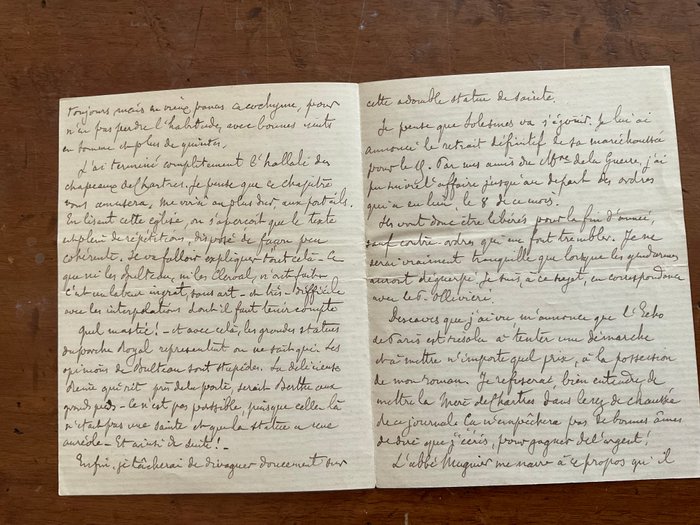 toujours, mais un vieux cacochyme, pour
n'en pas perdre l'habitude, avec bonnes nuits
en somme et plus de quintes.
J'ai terminé complètement l'hallali des
chapeaux de Chartres. Je pense que ce chapitre
vous amusera, me voici au plus dur, aux portails.
En lisant cette église, on s'aperçoit que le texte
est plein de répétitions, disposé de façon peu
cohérente. Il va falloir expliquer tout cela - ce
que ni les Bulteau, ni les Clerval, n'ont fait -
C'est un labeur ingrat, sans art - et très difficile
avec les interpolations dont il faut tenir compte
Quel mastic! - et avec cela, les grandes statues
du porche Royal représentent on ne sait qui. Les
opinions de Bulteau sont stupides. La délicieuse
Reine qui rit près de la porte, serait Berthe aux
grands pieds - Ce n'est pas possible, puisque celle-là
n'était pas une sainte et que la statue a une
auréole - Et ainsi de suite! -
Enfin, je tâcherai de divaguer doucement sur
cette adorable statue de sainte.
Je pense que Solesmes va s'éjouir. Je lui ai
annoncé le retrait définitif de sa maréchaussée
pour le 9. Par mes amis du Mère de la Guerre, j'ai
poursuivi l'affaire jusqu'au départ des ordres
qui a eu lieu, le 8 de ce mois.
Ils vont donc être libérés pour la fin d'année,
sauf contre-ordres qui me font trembler. Je ne
serai vraiment tranquille que lorsque les gendarmes
auront déguerpi. Je suis, à ce sujet, en correspondance
avec le P.
Descaves que j'ai vu m'annonce que l'Echo
de Paris est résolu à tenter une démarche
et à mettre n'importe quel prix, à la possession
de mon roman. Je refuserai, bien entendu, de
mettre la Mère de Chartres dans le rez de chaussée
de ce journal. Ça n'empêchera pas de bonnes âmes
de dire que j'écris, pour gagner de l'argent!
L'abbé Mugnier me narre à ce propos qu'il